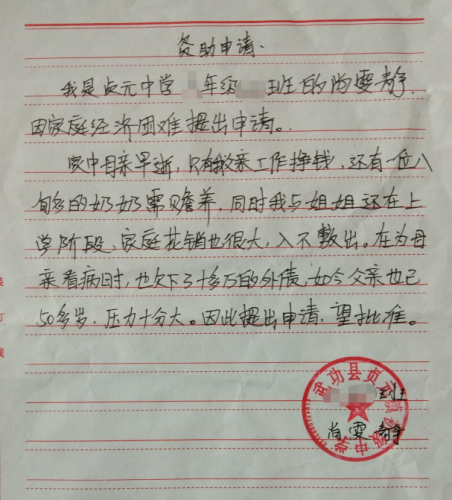 资助申请.
我是贞元中学 年级 班的尚雯静,
因家庭经济困难提出申请。
家中母亲早逝,只有父亲工作挣钱,还有一位八
旬多的奶奶需赡养,同时我与姐姐还在上
学阶段,家庭花销也很大,入不敷出。在为母
亲看病时,也欠下了十多万的外债,如今父亲也已
50多岁,压力十分大。因此提出申请,望批准。
武功县贞元镇初级中学
班
尚雯静